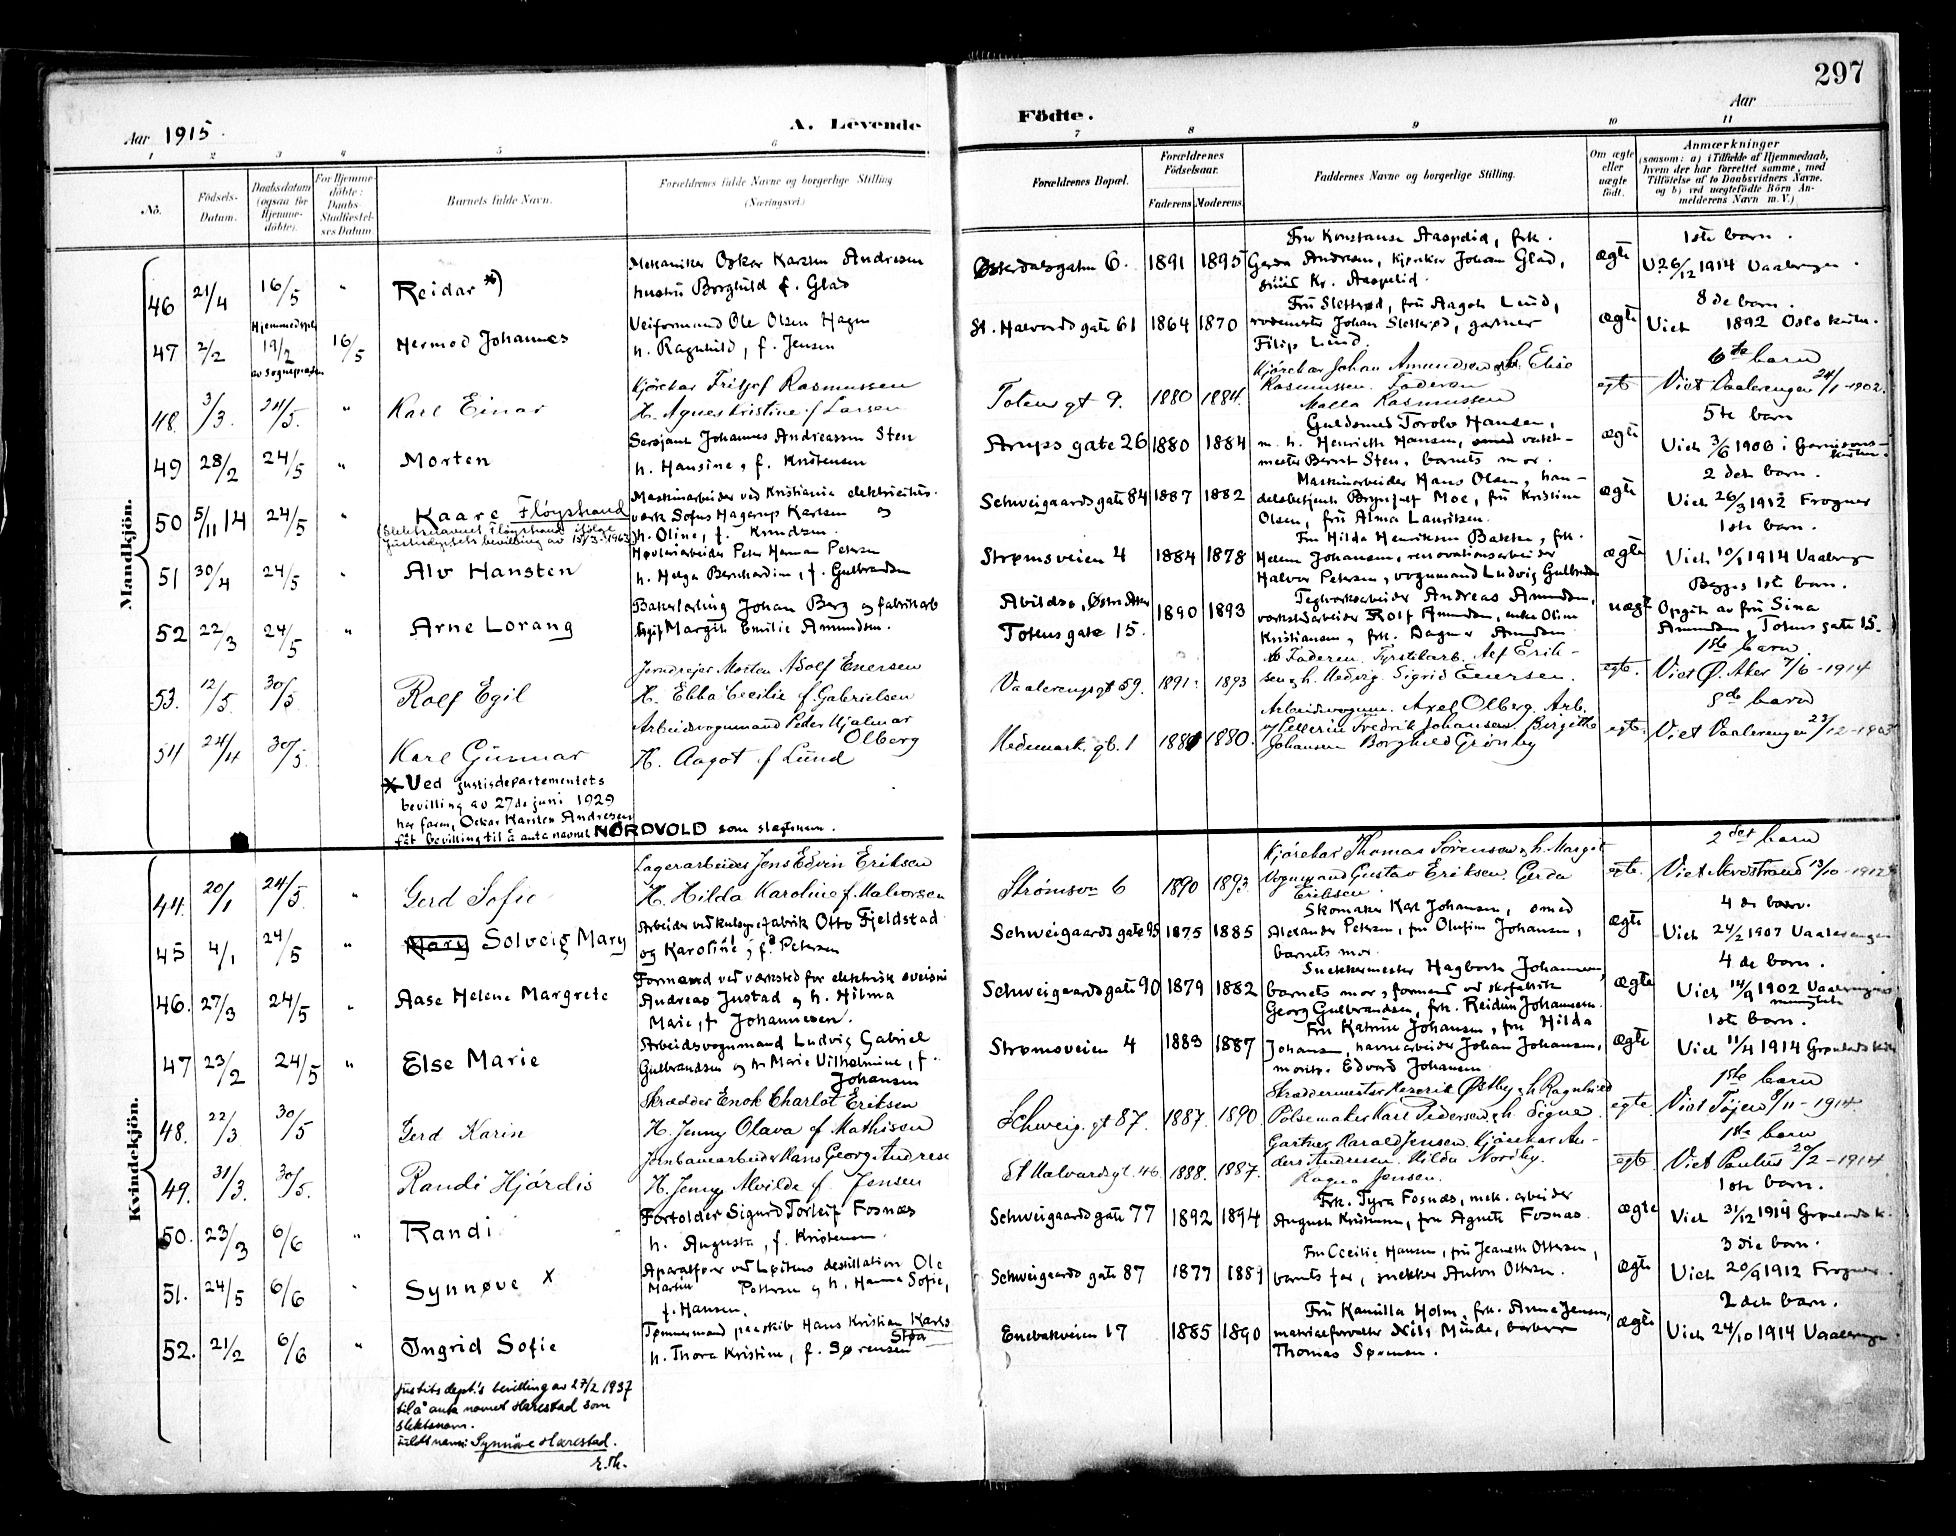 297
Aar 1915.
A. Levende
Födte.
Aar
1 2 3 4 5 6 7 8 9 10 11
No.
Födsels-Datum.
Daabsdatum (ogsaa for Hjemme-döbte).
For Hjemme-döbte: Daabs-Stadfæstel-ses Datum.
Barnets fulde Navn.
Forældrenes fulde Navne og borgerlige Stilling (Næringsvei.)
Forældrenes Bopæl.
Forældrenes Födselsaar.
Faderens. Moderens.
Faddernes Navne og borgerlige Stilling.
Om ægte eller uægte födt.
Anmærkninger
(saasom: a) i Tilfælde af Hjemmedaab, hvem der har forrettet samme, med Tilföielse af to Daabsvidners Navne, og b) ved uægtefödte Börn An-melderens Navn m. V.)
Mandkjön.
46 21/4 16/5 " Reidar *)
Mekaniker Oskar Karsten Andresen
hustru Borghild f. Glad
Østerdalsgaten 6. 1891 1895
Fru Konstanse Aaspelid, frk.
Gerda Andresen, kjørsker Johan Glad,
Kr. Aaspelid.
ægte
1ste barn.
V. 26/12 1914 Vaalerengen.
47 2/2 Hjemmedøpt 19/2 av sognepresten 16/5 Hermod Johannes
Veiformand Ole Olsen Hagen
h. Ragnhild, f. Jensen
St. Halvards gate 61 1864 1870
Fru Sletterød, fru Aagot Lund,
rodemester Johan Sletterød, gartner
Filip Lund.
ægte
8de barn.
Viet 1892 Oslo kirke.
48. 3/3. 24/5. " Karl Einar
Kjørekar Fritjof Rasmussen
H. Agnes Kristine f. Larsen
Totens gt 9. 1880 1884.
Kjørekar Johan Amundsen og h. Elise
Rasmussen. Faderen
Malla Rasmussen
egte
6te barn
Viet Vaalerengen 24/1-1902.
49 28/2 24/5 " Morten
Sersjant Johannes Andreassen Sten
h. Hansine, f. Kristensen
Arups gate 26 1880 1884
Guldsmed Torolv Hansen,
m. h. Henriette Hansen, smed verk-
mester Bernt Sten, barnets mor.
ægte
5te barn
Viet 3/6 1906 i Garnisons-
kirken.
50 5/11 14 24/5 " Kaare Fløystrand
(Slektsnavnet Fløystrand ifølge
Justisdeptets bevilling av 15/3-1963)
Maskinarbeider ved Kristiania elektricitets-
verk Sofus Hagerup Karlsen og
h. Oline, f. Knudsen
Schweigaards gate 84 1887 1882
Maskinarbeider Hans Olsen, han-
delsbetjent Brynjulf Moe, fru Kristine
Olsen, fru Alma Lauritzen.
ægte
2det barn.
Viet 26/3 1912 Frogner
51 30/4 24/5 " Alv Hansten
Høvleriarbeider Peter Herman Petersen
h. Helga Bernhardine, f. Gulbrandsen
Strømsveien 4 1884 1878
Fru Hilda Henriksen Bakken, frk.
Helene Johansen, renovationsarbeider
Halvor Petersen, vognmand Ludvig Gulbrandsen
ægte
1ste barn.
Viet 10/1 1914 Vaalereng
52 22/3 24/5 " Arne Lorang
Bakerlærling Johan Berg og fabrikarb
Margit Emilie Amundsen.
Abildsø, Østre Aker
Totens gate 15. 1890 1893
Teglverksarbeider Andreas Amundsen,
verkstedarbeider Rolf Amundsen, enke Oline
Kristiansen, frk. Dagmar Amundsen
uægte
Begges 1ste barn.
Opgit av fru Sina
Amundsen, Totens gate 15.
53. 12/5. 30/5. Rolf Egil
Jerndreier Morten Adolf Enersen
H. Ebba Cecilie f. Gabrielsen
Vaalerengsgt 59. 1891. 1893
Faderen. Fyrstikarb. Alf Erik-
sen og h. Hedvig. Sigrid Enersen.
egte.
1ste barn.
Viet Ø. Aker 7/6-1914
54 24/4 30/5. Karl Gunnar
Arbeidsvognmand Peder Hjalmar
Olberg
H. Aagot f Lund
Hedemark. gt. 1 1880.
Arbeidsvognm. Axel Olberg. Arb.
og Pellerin Fredrik Johansen Birgitte
Johansen Borghild Grønby
egte.
5de barn
Viet Vaalerengen 23/12-1903
* Ved justisdepartementets
bevilling av 27de juni 1929
har faren, Oskar Karsten Andresen
fåt bevilling til å anta navnet NORDVOLD som slegtsnavn.
Kvindekjön.
44. 20/1 24/5. " Gerd Sofie
Lagerarbeider Jens Edvin Eriksen
H. Hilda Karoline f. Halvorsen
Strømsvn 6 1890 1893.
Kjørekar Thomas Sørensen og h. Margit
Vognmand Gustav Eriksen. Gerda
Eriksen.
egte.
2det barn
Viet Nevestrand 13/10-1912
45 4/1 24/5 " Mary Solveig Mary
Arbeider ved kulsyrefabrik Otto Fjeldstad
og Karoline, f. Petersen
Schweigaards gate 95 1875 1885
Skomaker Karl Johansen, smed
Alexander Petersen, fru Olufine Johansen,
barnets mor.
ægte
4de barn.
Viet 24/2 1907 Vaalerengen
46. 27/3 24/5 " Aase Helene Margrete
Formand ved verksted for elektrisk sveisning
Andreas Justad og h. Hilma
Marie, f. Johannesen.
Schweigaards gate 90 1879 1882
Snekkermester Hagbart Johannesen,
barnets mor, formand ved skofabrik
Georg Gulbrandsen, frk. Reidun Johannesen.
ægte
4de barn.
Viet 14/9 1902 Vaalerengens
menighet
47 23/2 24/5 " Else Marie
Arbeidsvognmand Ludvig Gabriel
Gulbrandsen og h. Marie Vilhelmine, f.
Johansen
Strømsveien 4 1883 1887
Fru Katrine Johansen, fru Hilda
Johansen, havnearbeider Johan Johansen,
Edvard Johansen
ægte
1ste barn.
Viet 11/4 1914 Grønlands kirke
48. 22/3 30/5 Gerd Karin
Skrædder Enok Charlot Eriksen
H. Jenny Olava f Mathisen
Schweig. gt 87. 1887. 1890.
Skræddermester Henrik Østby og h Ragnhild
Pølsemaker Karl Pedersen og h. Signe.
egte
1ste barn
Viet Tøjen 8/11-1914.
49. 31/3. 30/5. Randi Hjørdis
Jernbanearbeider Hans Georg Andresen
H. Jenny Alvilde f. Jensen
St Halvards gt. 46 1888. 1887.
Gartner Harald Jensen. Kjørekar An-
ders Andresen. Hilda Nordby.
Ragna Jensen.
egte
1ste barn
Viet Paulus 20/2-1914
50. 23/3 6/6 " Randi
Fortolder Sigurd Torleif Fosnæs
h. Augusta, f. Kristensen.
Schweigaards gate 77 1892 1894
Frk. Tyra Fosnæs, mek. arbeider
August Kristensen, fru Agnete Fosnæs.
ægte
1ste barn.
Viet 31/12 1914 Grønlands k.
51. 24/5 6/6 " Synnøve X
Aparatfører ved Løitens destillation Ole
Martin Pettersen og h. Hanna Sofie,
f. Hansen.
Schweigaards gate 87 1877 1889
Fru Cecilie Hansen, fru Jeanette Ottersen,
barnets far, snekker Anton Ottersen.
ægte
3die barn.
Viet 20/9 1912 Frogner.
52. 21/2 6/6 " Ingrid Sofie
Tømmermand paa skib Hans Kristian Karls
Støa
h. Thora Kristine, f. Sørensen
Enebakveien 17 1885 1890
Fru Kamilla Holm, frk. Anna Jensen,
matrialforvalter Nils Munde, barberer
Thomas Sørensen.
ægte
2det barn.
Viet 24/10 1914 Vaalerengen
Justitsdept.'s bevilling av 27/2 1937
til å anta navnet Harestad som
slektsnavn.
fulde navn: Synnöve Harestad.
E. Th.